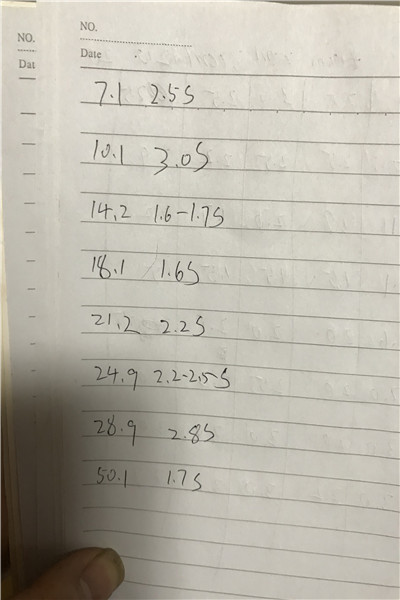 NO.
NO.
Date
Dat
7.1 2.5S
10.1 3.0S
14.2 1.6-1.7S
18.1 1.6S
21.2 2.2S
24.9 2.2-2.5S
28.9 2.8S
50.1 1.7S